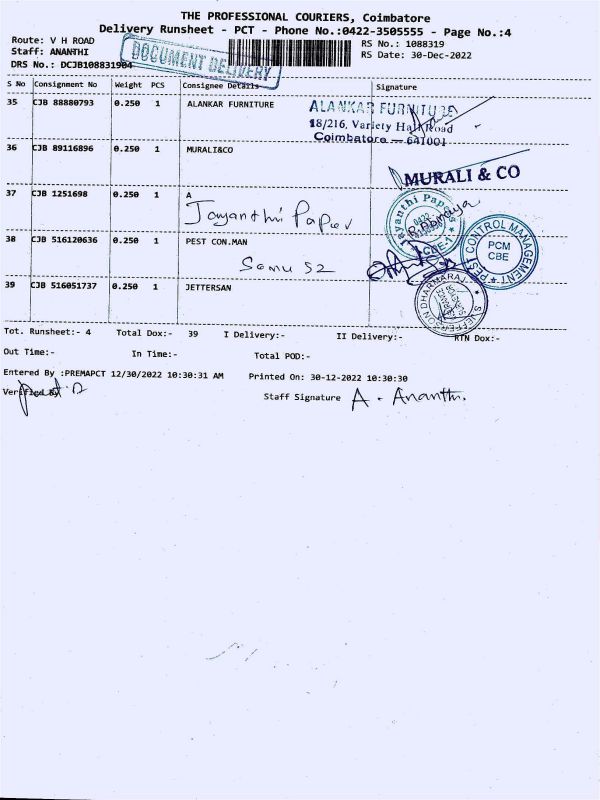 THE PROFESSIONAL COURIERS, Coimbatore
Delivery Runsheet - PCT - Phone No.:0422-3505555 - Page No.:4
Route: V H ROAD
RS No.: 1088319
Staff: ANANTHI
RS Date: 30-Dec-2022
DRS No.: DCJB108831904
DOCUMENT DELIVERY
S No Consignment No Weight PCS Consignee Details Signature
35 CJB 88880793 0.250 1 ALANKAR FURNITURE
ALANKAR FURNITURE
18/216, Variety Hall Road
Coimbatore - 641001
36 CJB 89116896 0.250 1 MURALI&CO
MURALI & CO
37 CJB 1251698 0.250 1 A
Jayanthi Paper
Jayanthi Papers
0422
CBE-1
38 CJB 516120636 0.250 1 PEST CON.MAN
Somu S2
PEST CONTROL MANAGEMENT
PCM
CBE
39 CJB 516051737 0.250 1 JETTERSAN
Tot. Runsheet:- 4 Total Dox:- 39 I Delivery:- II Delivery:- RTN Dox:-
Out Time:- In Time:- Total POD:-
Entered By :PREMAPCT 12/30/2022 10:30:31 AM Printed On: 30-12-2022 10:30:30
Verified By
Staff Signature A. Ananthi.